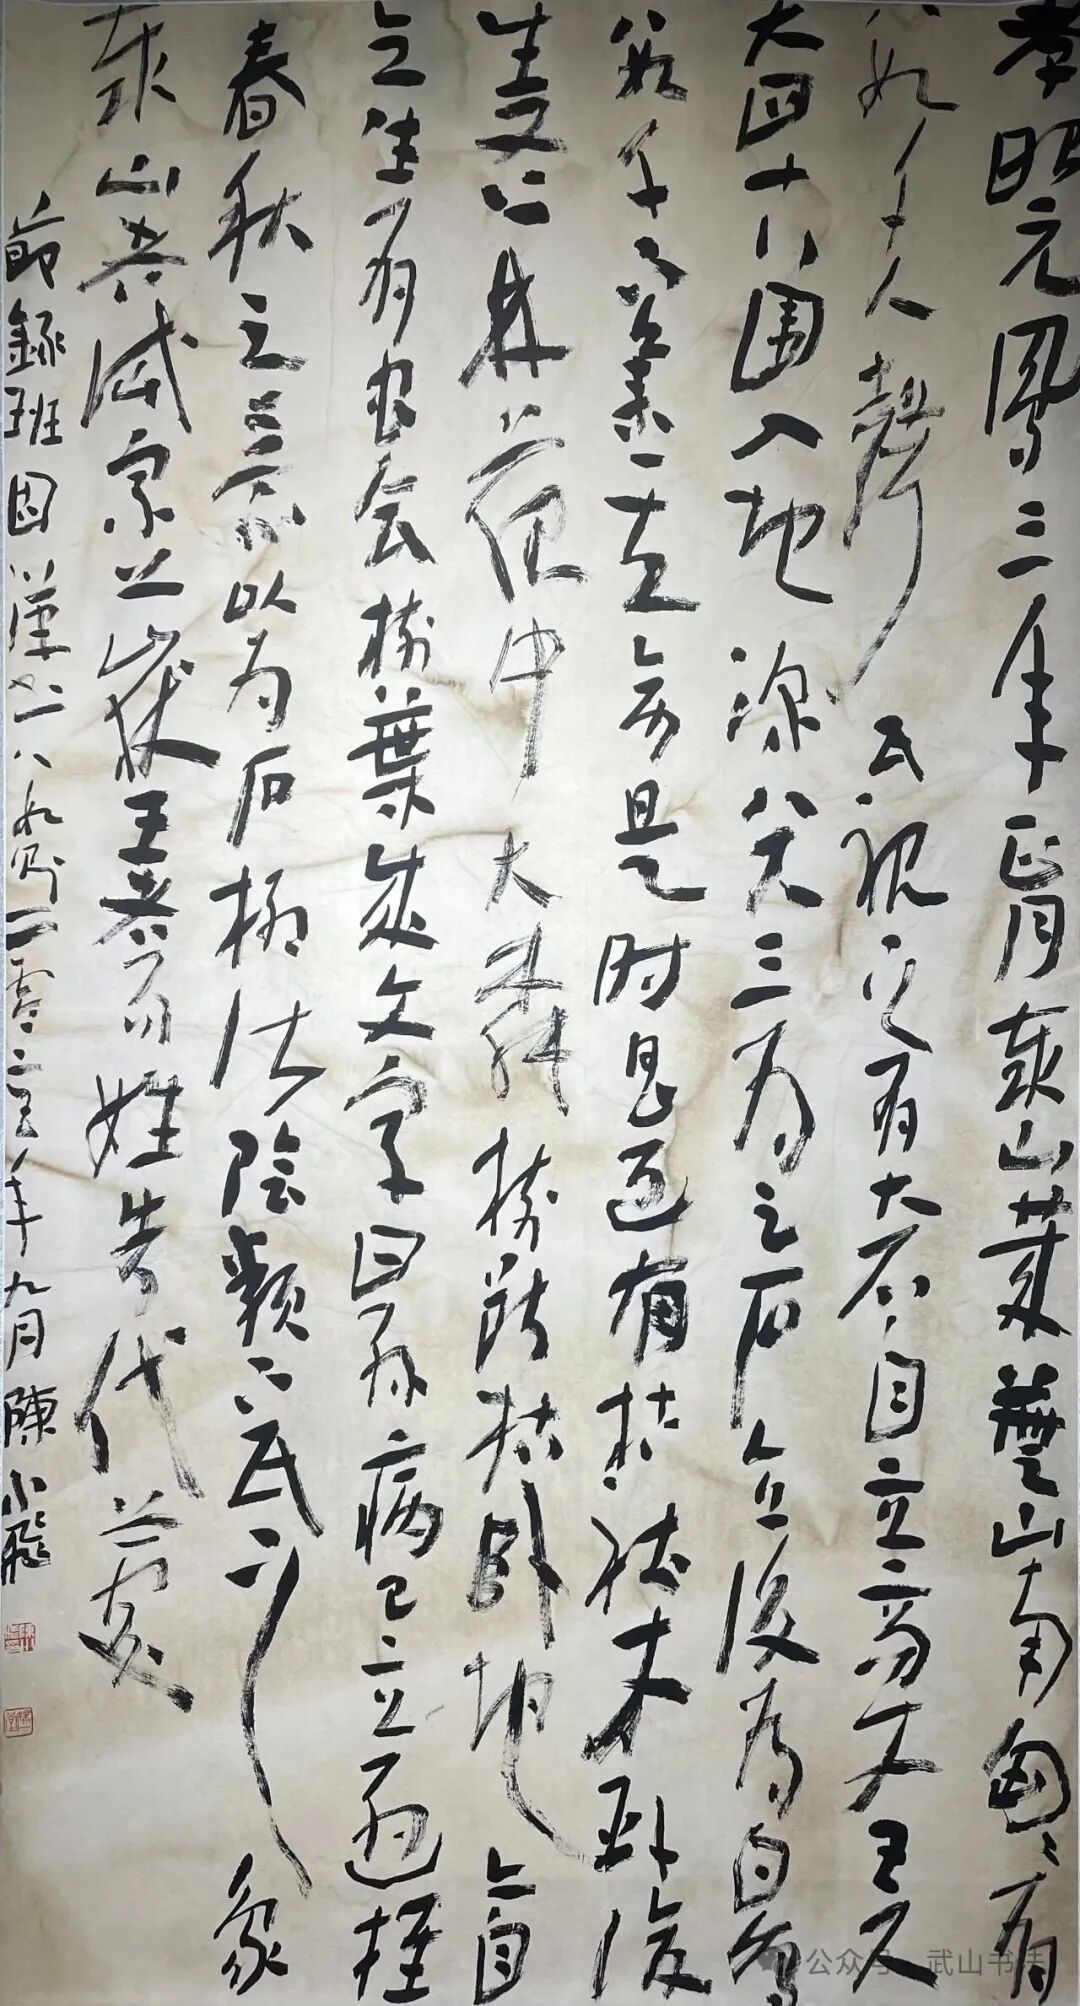 孝昭元鳳三年正月泰山萊蕪山南匈匈有
数千人聲民視之有大石自立高丈五尺
大四十八围入地深八尺三为足石立後为白烏
数千下集其旁是时昌邑有枯社木卧復
生又上林苑中大柳樹斷枯卧地亦自
立生有虫食樹葉成文字曰公孫病已立孟推
春秋之意以为石柳皆陰類下民之象
泰山者岱宗之嶽王者易姓告代之處
節錄班固漢書年九月陳小飛
公众号·武山书法